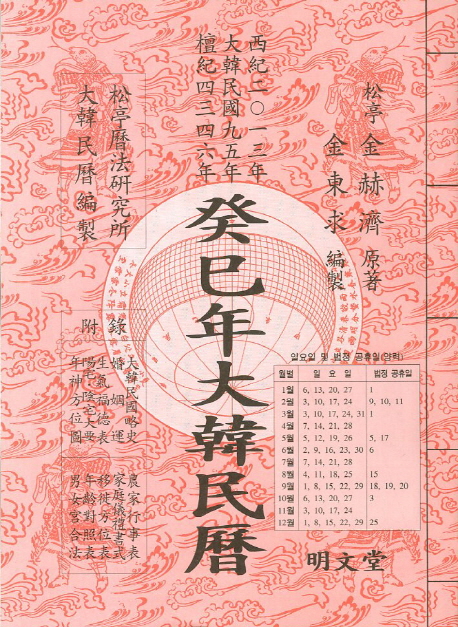 松亭 金赫濟 原著
金東求 編製
西紀二〇一三年
大韓民國九五年
檀紀四三四六年
松亭曆法硏究所
大韓民曆編製
癸巳年大韓民曆
附錄
大韓民國略史
婚姻運
生氣福德表
陽宅陰宅大要
年神方位圖
農家行事表
家庭儀禮書式
移徙方位表
年齡對照表
男女宮合法
일요일 및 법정 공휴일(양력)
월별 일 요 일 법정 공휴일
1월 6, 13, 20, 27 1
2월 3, 10, 17, 24 9, 10, 11
3월 3, 10, 17, 24, 31 1
4월 7, 14, 21, 28
5월 5, 12, 19, 26 5, 17
6월 2, 9, 16, 23, 30 6
7월 7, 14, 21, 28
8월 4, 11, 18, 25 15
9월 1, 8, 15, 22, 29 18, 19, 20
10월 6, 13, 20, 27 3
11월 3, 10, 17, 24
12월 1, 8, 15, 22, 29 25
明文堂